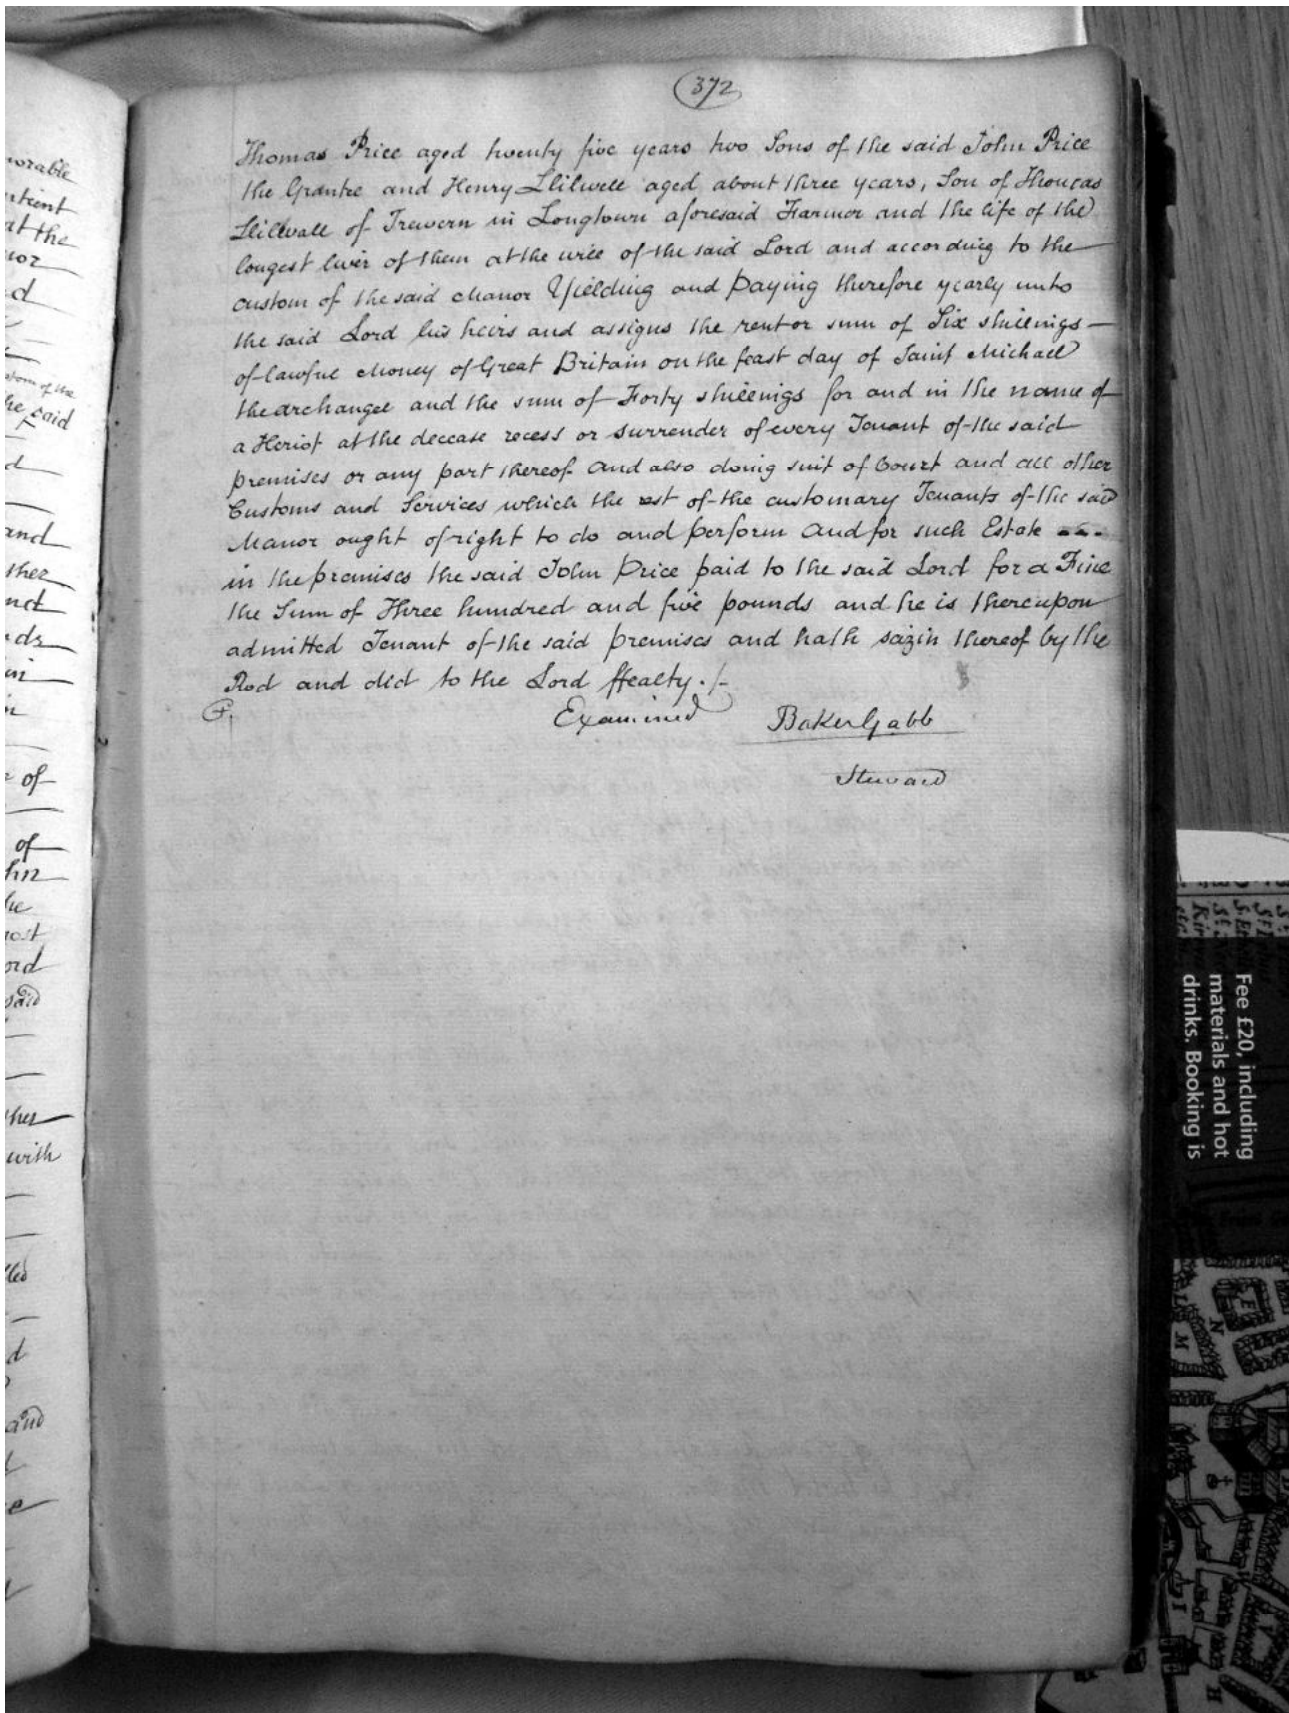 372
Thomas Price aged twenty five years two Sons of the said John Price
the Grantee and Henry Llilwell aged about three years, Son of Thomas
Llilwall of Trewern in Longtown aforesaid Farmer and the life of the
longest liver of them at the will of the said Lord and according to the
custom of the said Manor Yielding and paying therefore yearly unto
the said Lord his heirs and assigns the rent or sum of Six shillings
of lawful Money of Great Britain on the feast day of Saint Michael
the archangel and the sum of Forty shillings for and in the name of
a Heriot at the decease recess or surrender of every Tenant of the said
premises or any part thereof and also doing suit of Court and all other
Customs and Services which the rest of the customary Tenants of the said
Manor ought of right to do and perform And for such Estate
in the premises the said John Price paid to the said Lord for a Fine
the Sum of Three hundred and five pounds and he is thereupon
admitted Tenant of the said premises and hath seizin thereof by the
Rod and did to the Lord ffealty ./-
Examined Baker Gabb
Steward
orable
at the
nor
d
stom of the
he said
d
and
ther
nd
in
of
of
hn
he
most
ord
said
her
with
lled
d
and
e
Fee £20, including
materials and hot
drinks. Booking is